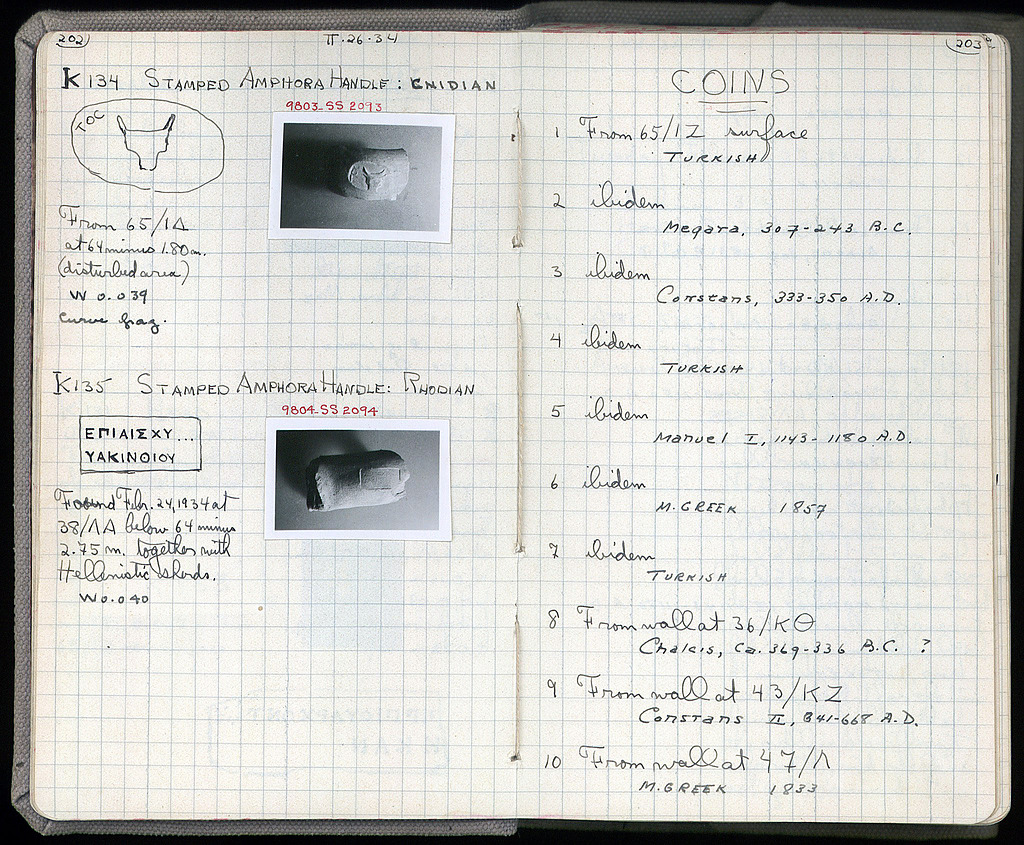 202
II·26·34
K134 STAMPED AMPHORA HANDLE: CNIDIAN
9803-SS 2093
TOC
From 65/ΙΔ
at 64 minus 1.80 m.
(disturbed area)
W 0.039
Curve frag.
K135 STAMPED AMPHORA HANDLE: RHODIAN
9804-SS 2094
ΕΠΙΑΙΣΧΥ...
ΥΑΚΙΝΘΙΟΥ
Found Feb. 24, 1934 at
38/ΛΔ below 64 minus
2.75 m. together with
Hellenistic sherds.
W 0.040
203
COINS
1 From 65/ΙΖ surface
TURKISH
2 ibidem
Megara, 307-243 B.C.
3 ibidem
Constans, 333-350 A.D.
4 ibidem
TURKISH
5 ibidem
Manuel I, 1143-1180 A.D.
6 ibidem
M.GREEK 1857
7 ibidem
TURKISH
8 From wall at 36/ΚΘ
Chalcis, Ca. 369-336 B.C. ?
9 From wall at 43/ΚΖ
Constans II, 641-668 A.D.
10 From wall at 47/Λ
M.GREEK 1833